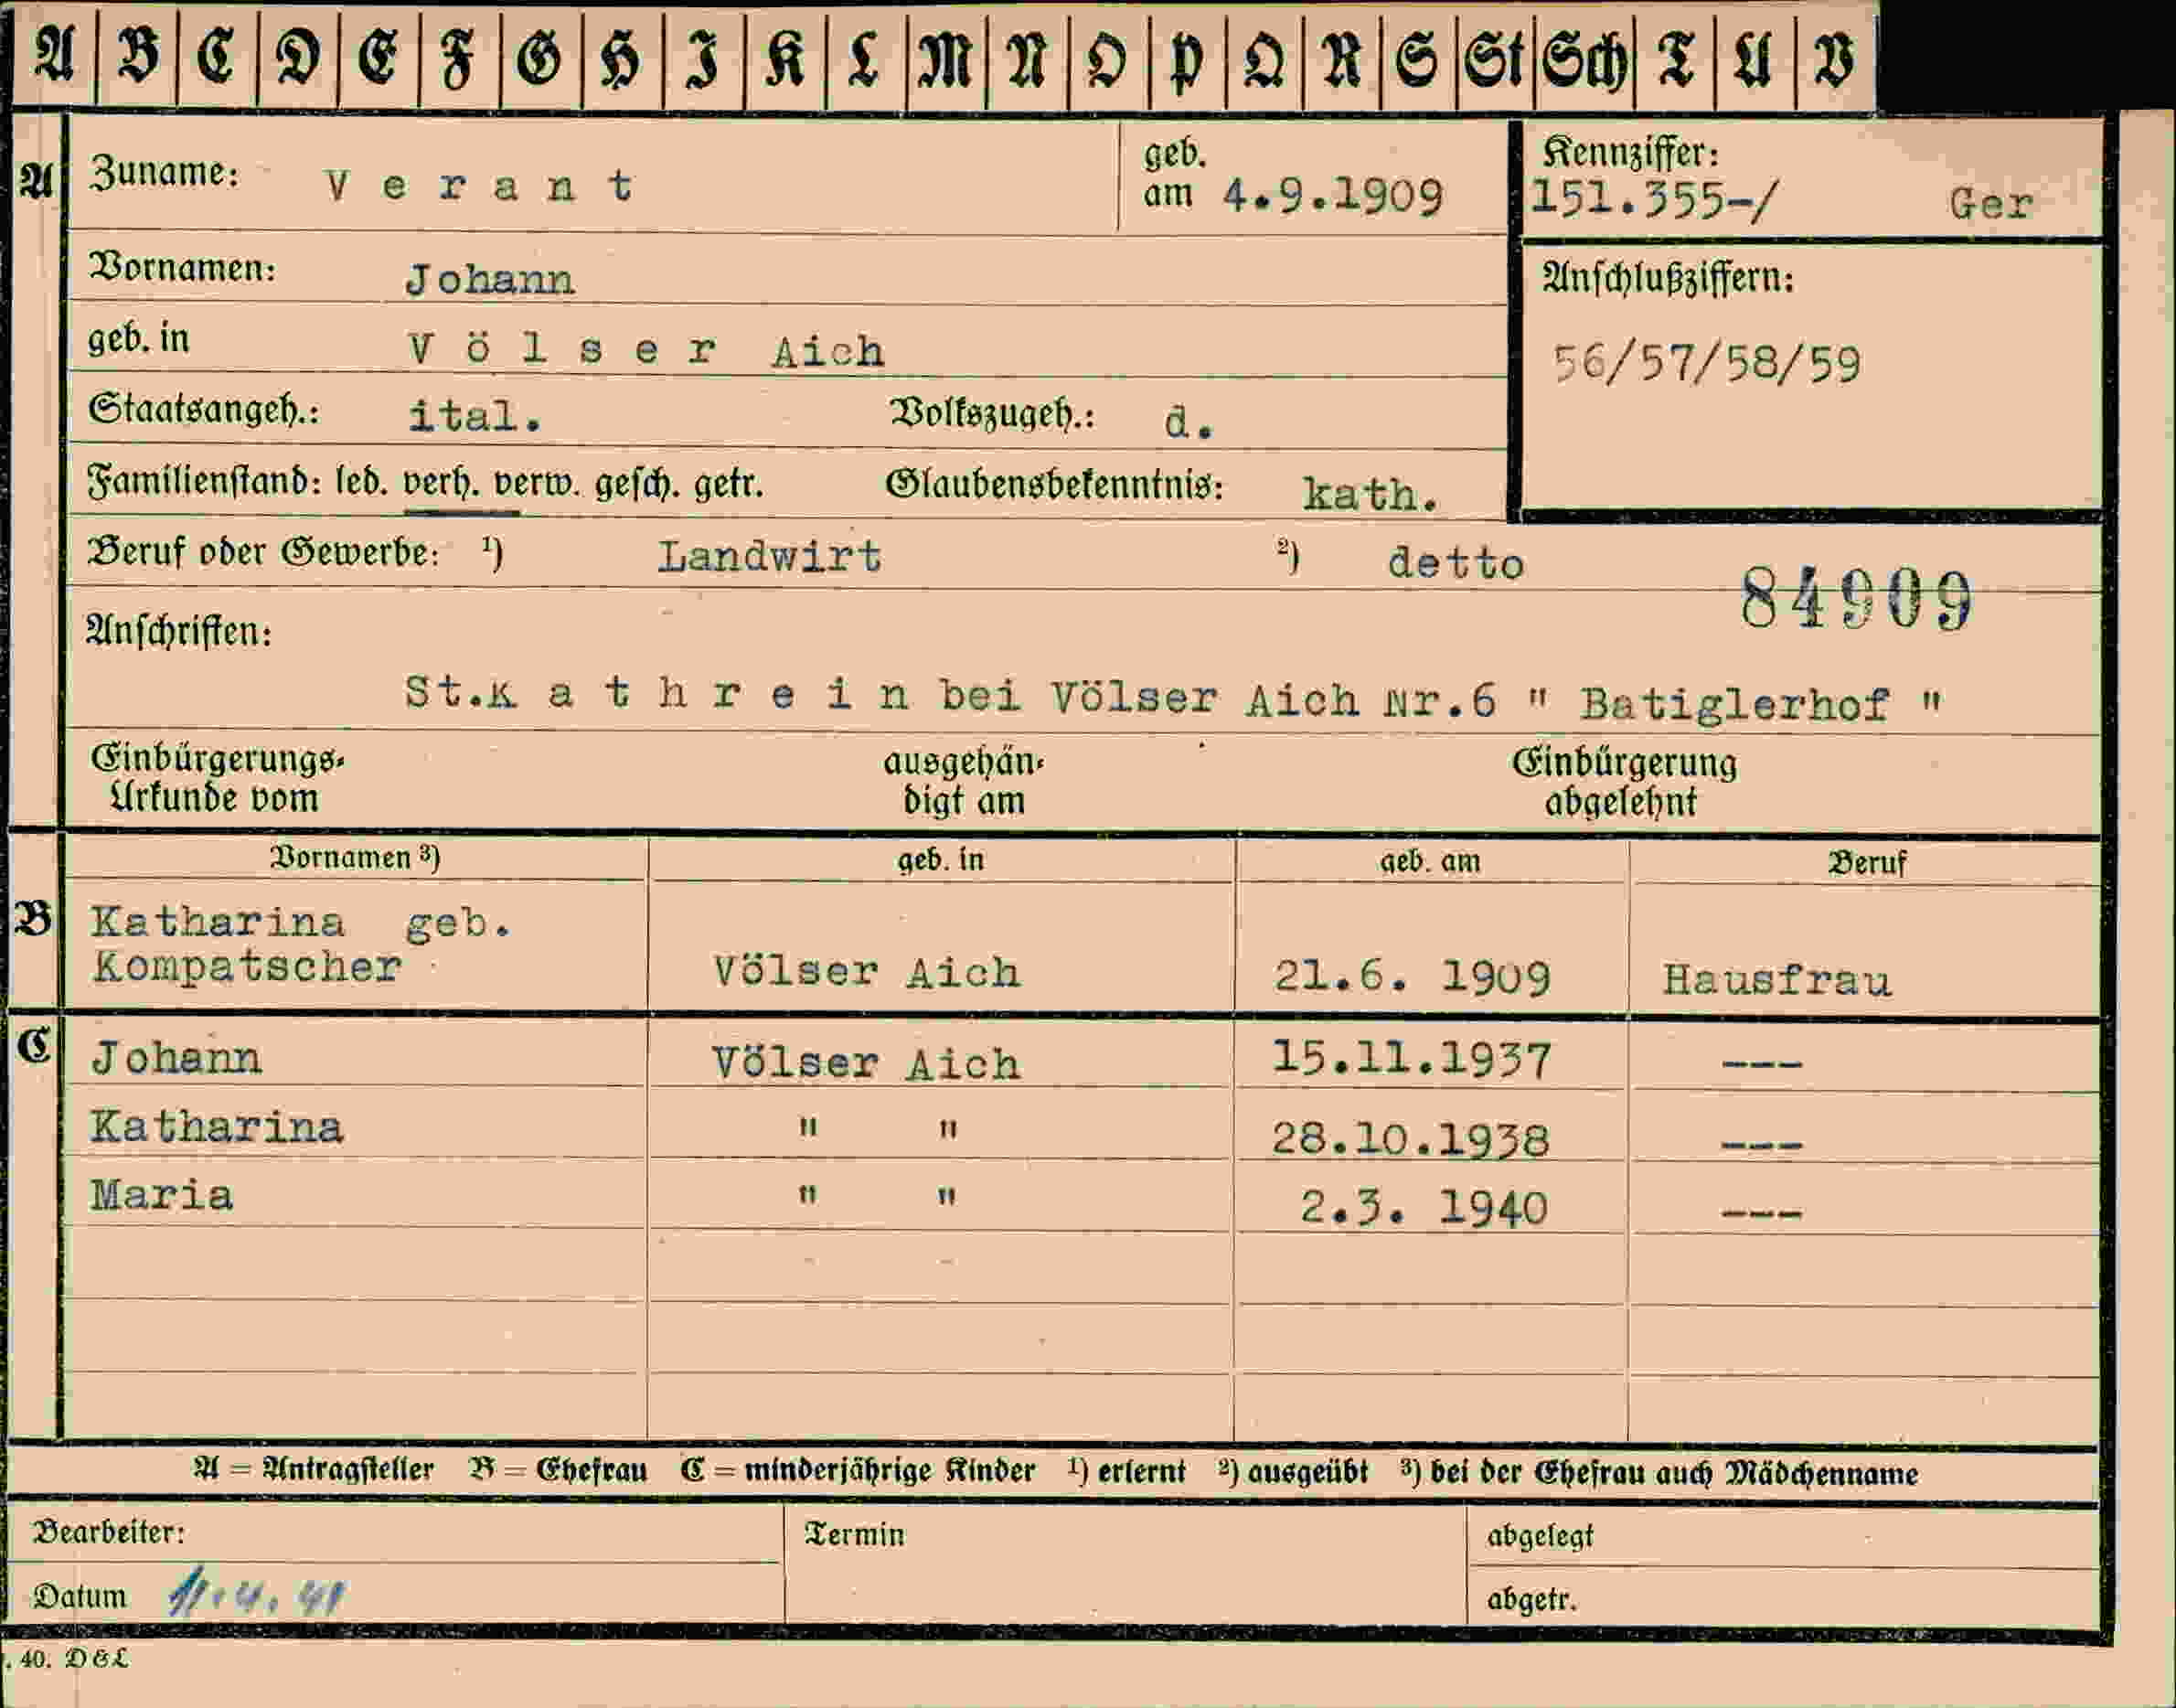 A B C D E F G H I K L M N O P Q R S St Sch T U V
A Zuname: Verant geb. am 4.9.1909 Kennziffer: 151.355-/ Ger
Vornamen: Johann Anschlußziffern:
geb. in Völser Aich 56/57/58/59
Staatsangeh.: ital. Volkszugeh.: d.
Familienstand: led. verh. verw. gesch. getr. Glaubensbekenntnis: kath.
Beruf oder Gewerbe: 1) Landwirt 2) detto
84909
Anschriften:
St.Kathrein bei Völser Aich Nr.6 " Batiglerhof "
Einbürgerungs- ausgehän- Einbürgerung
Urkunde vom digt am abgelehnt
Vornamen 3) geb. in geb. am Beruf
B Katharina geb.
Kompatscher Völser Aich 21.6. 1909 Hausfrau
C Johann Völser Aich 15.11.1937 ---
Katharina " " 28.10.1938 ---
Maria " " 2.3. 1940 ---
A = Antragsteller B = Ehefrau C = minderjährige Kinder 1) erlernt 2) ausgeübt 3) bei der Ehefrau auch Mädchenname
Bearbeiter: Termin abgelegt
Datum 11.4.41 abgetr.
. 40. D & L